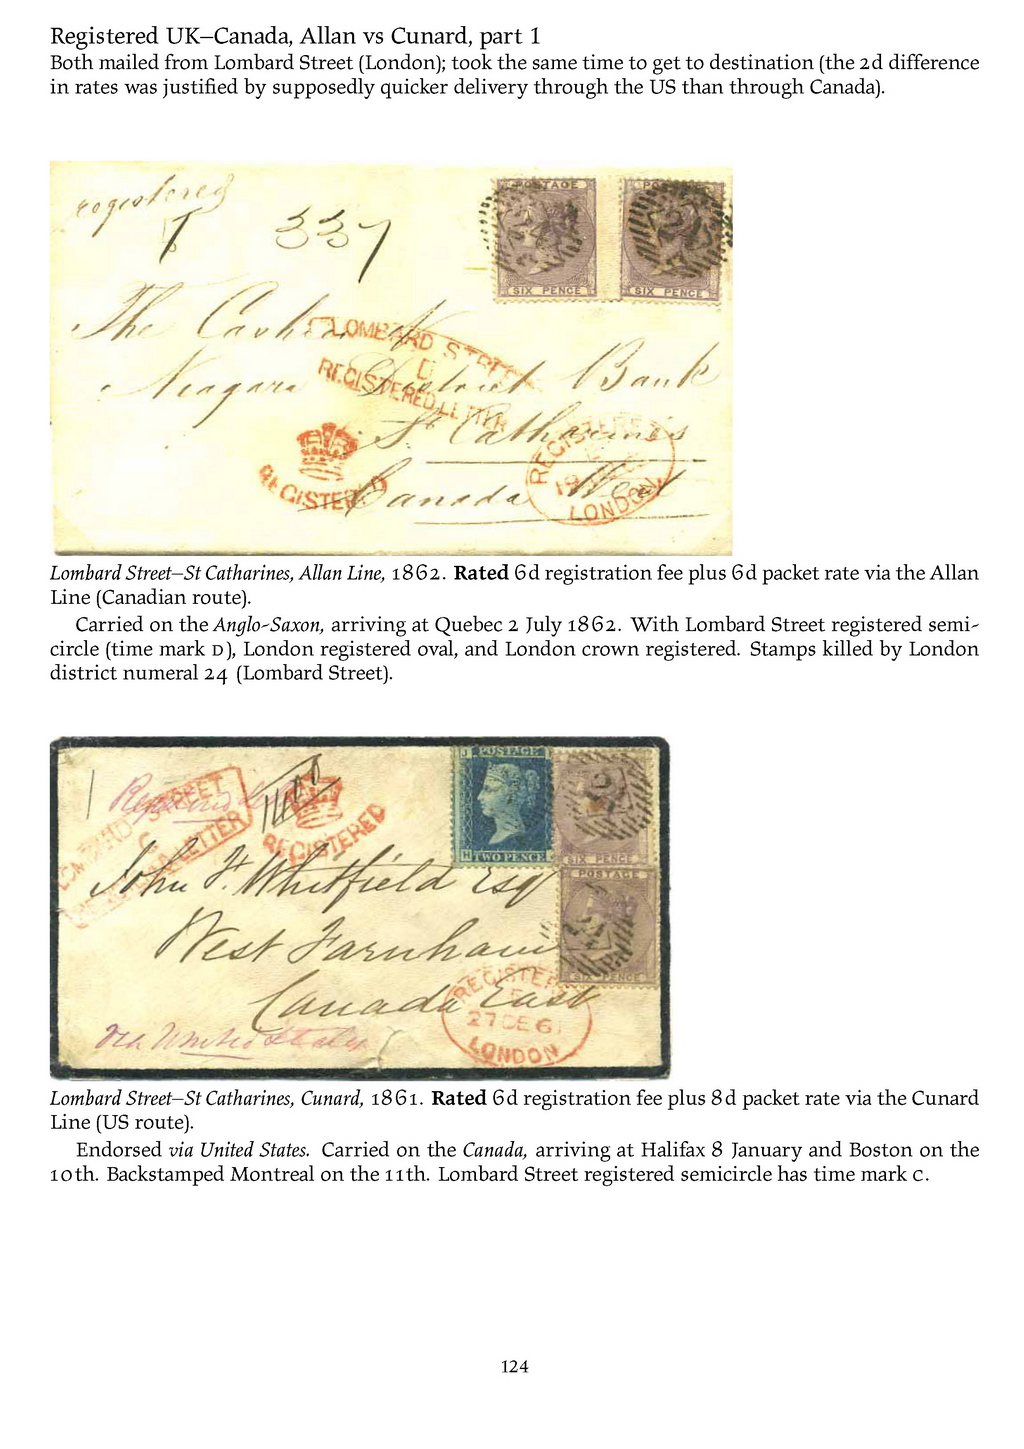 Registered UK–Canada, Allan vs Cunard, part 1
Both mailed from Lombard Street (London); took the same time to get to destination (the 2d difference
in rates was justified by supposedly quicker delivery through the US than through Canada).
registered
337
POSTAGE
SIX PENCE
SIX PENCE
The Cashier
LOMBARD STREET
D
REGISTERED LETTER
Niagara District Bank
St Catharines
REGISTERED
Canada West
REGISTERED
LONDON
Lombard Street–St Catharines, Allan Line, 1862. Rated 6d registration fee plus 6d packet rate via the Allan
Line (Canadian route).
Carried on the Anglo-Saxon, arriving at Quebec 2 July 1862. With Lombard Street registered semi-
circle (time mark D), London registered oval, and London crown registered. Stamps killed by London
district numeral 24 (Lombard Street).
POSTAGE
TWO PENCE
SIX PENCE
POSTAGE
SIX PENCE
LOMBARD STREET
C
REGISTERED LETTER
REGISTERED
John F. Whitfield Esq
West Farnham
Canada East
via United States
REGISTERED
27 DE 61
LONDON
Lombard Street–St Catharines, Cunard, 1861. Rated 6d registration fee plus 8d packet rate via the Cunard
Line (US route).
Endorsed via United States. Carried on the Canada, arriving at Halifax 8 January and Boston on the
10th. Backstamped Montreal on the 11th. Lombard Street registered semicircle has time mark C.
124